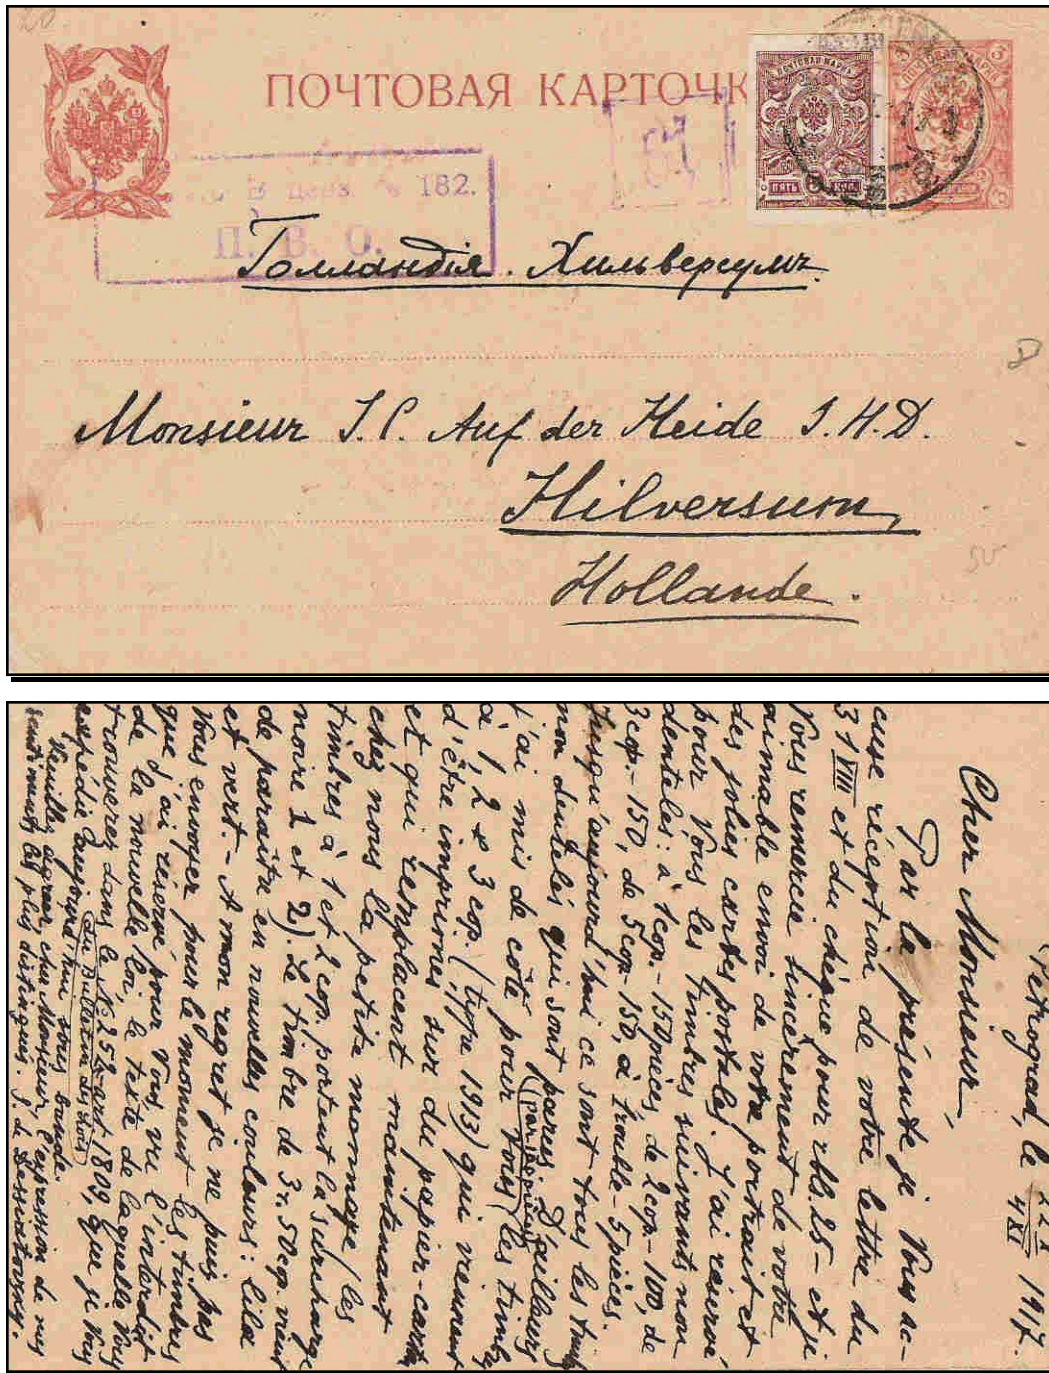 20
ПОЧТОВАЯ КАРТОЧК
ПОЧТОВАЯ МАРКА
ПЯТЬ 5 КОП.
3
182.
П. В. О.
Голландія. Хильверсумъ
Monsieur J. P. Auf der Heide J.H.D.
Hilversum,
Hollande.
Petrograd, le 22 X / 4 XI 1917.
Cher Monsieur,
Par la présente je Vous ac-
cuse réception de votre lettre du
31 VIII et du chéque pour rbls. 25 - et je
Vous remercie sincèrement de votre
aimable envoi de votre portrait et
des jolies cartes postales. J'ai réservé
pour Vous les timbres suivants non
dentelés: à 1 cop. - 150 pièces, de 2 cop. - 100, de
3 cop. - 150, de 5 cop - 150, à 1 rouble - 5 pièces.
Jusqu'aujourd'hui ce sont tous les timb
non dentelés qui sont parus. D'ailleurs
j'ai mis de côté pour Vous (par 100 pièces) les timb
à 1, 2 & 3 cop. (type 1913) qui viennent
d'être imprimés sur du papier-carton
et qui remplacent maintenant
chez nous la petite monnaye (les
timbres à 1 et 2 cop. portent la surcharge
noire 1 et 2). Le timbre de 3 r. 50 cp. vient
de paraître en nouvelles couleurs: lila
et vert. - A mon regret je ne puis pas
Vous envoyer pour le moment les timbres
que j'ai réservé pour Vous vu l'interdit
de la nouvelle loi, le texte de laquelle Vous
trouverez dans le № 252-art 1809, (du Bulletin des lois) que je Vous
expédie aujourd'hui sous bande.
Veuillez agréer, cher Monsieur, l'expression de mes
sentiments les plus distingués. J. de